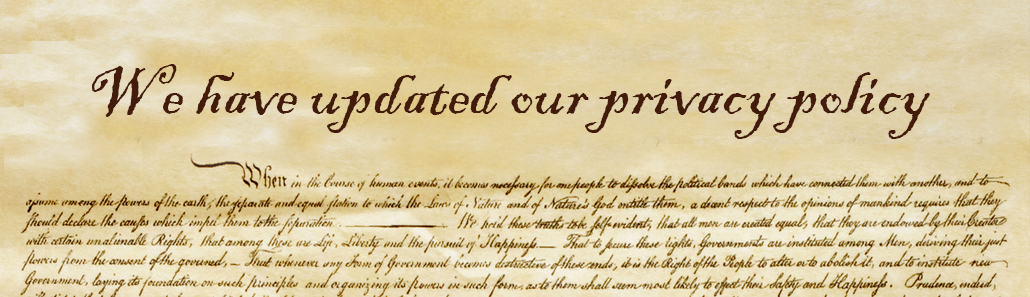 We have updated our privacy policy
When in the Course of human events, it becomes necessary for one people to dissolve the political bands which have connected them with another, and to
assume among the powers of the earth, the separate and equal station to which the Laws of Nature and of Nature's God entitle them, a decent respect to the opinions of mankind requires that they
should declare the causes which impel them to the separation. — We hold these truths to be self-evident, that all men are created equal, that they are endowed by their Creator
with certain unalienable Rights, that among these are Life, Liberty and the pursuit of Happiness.— That to secure these rights, Governments are instituted among Men, deriving their just
powers from the consent of the governed, — That whenever any Form of Government becomes destructive of these ends, it is the Right of the People to alter or to abolish it, and to institute new
Government, laying its foundation on such principles and organizing its powers in such form, as to them shall seem most likely to effect their Safety and Happiness. Prudence, indeed,